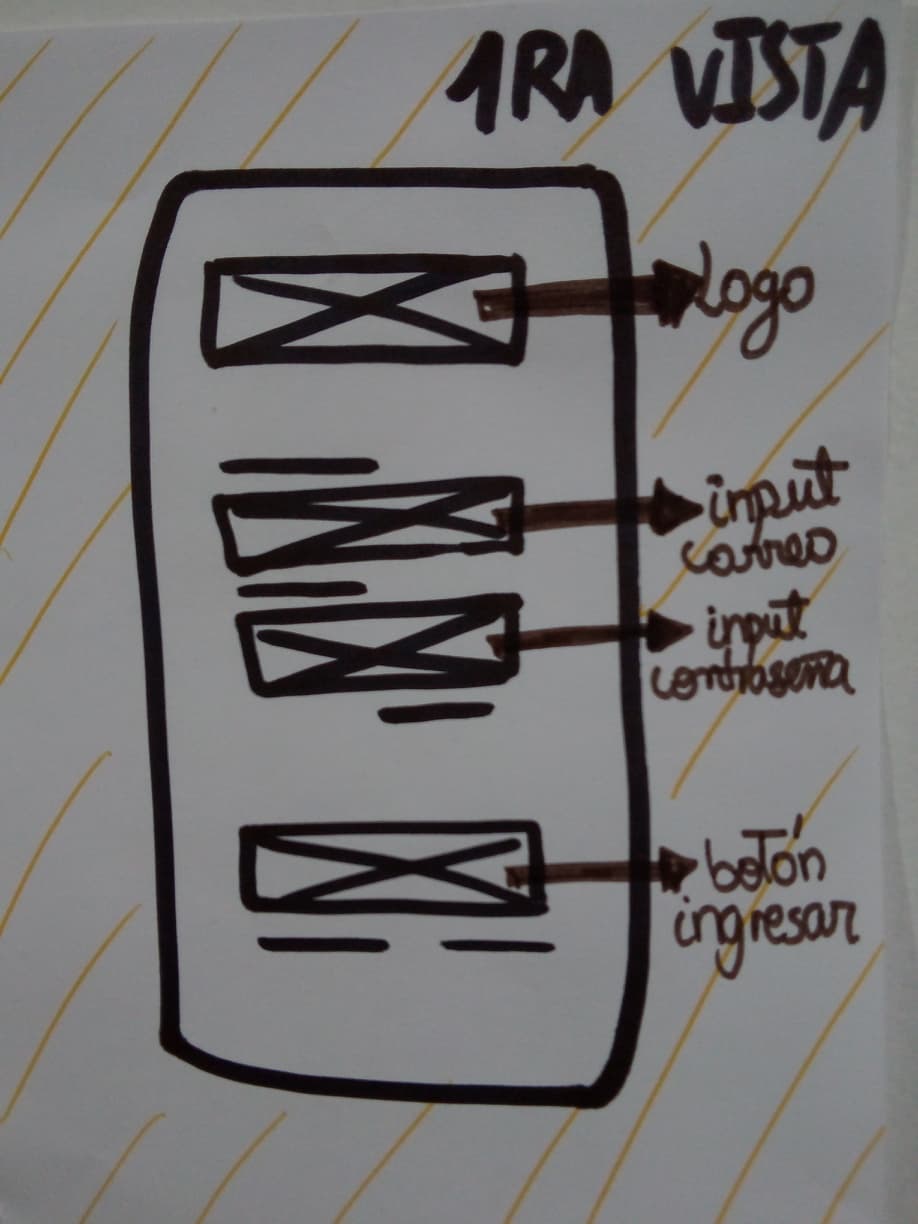 1RA VISTA
Logo
input
correo
input
contraseña
botón
ingresar